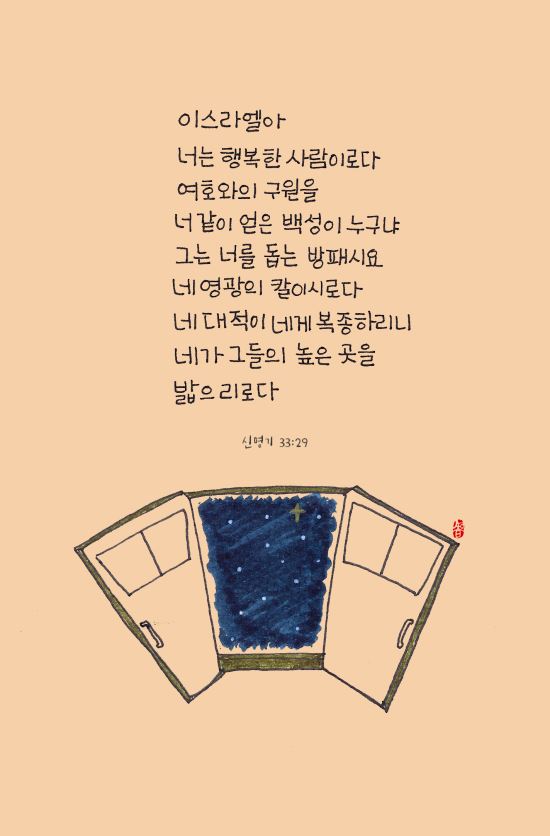 이스라엘아
너는 행복한 사람이로다
여호와의 구원을
너 같이 얻은 백성이 누구냐
그는 너를 돕는 방패시요
네 영광의 칼이시로다
네 대적이 네게 복종하리니
네가 그들의 높은 곳을
밟으리로다
신명기 33:29